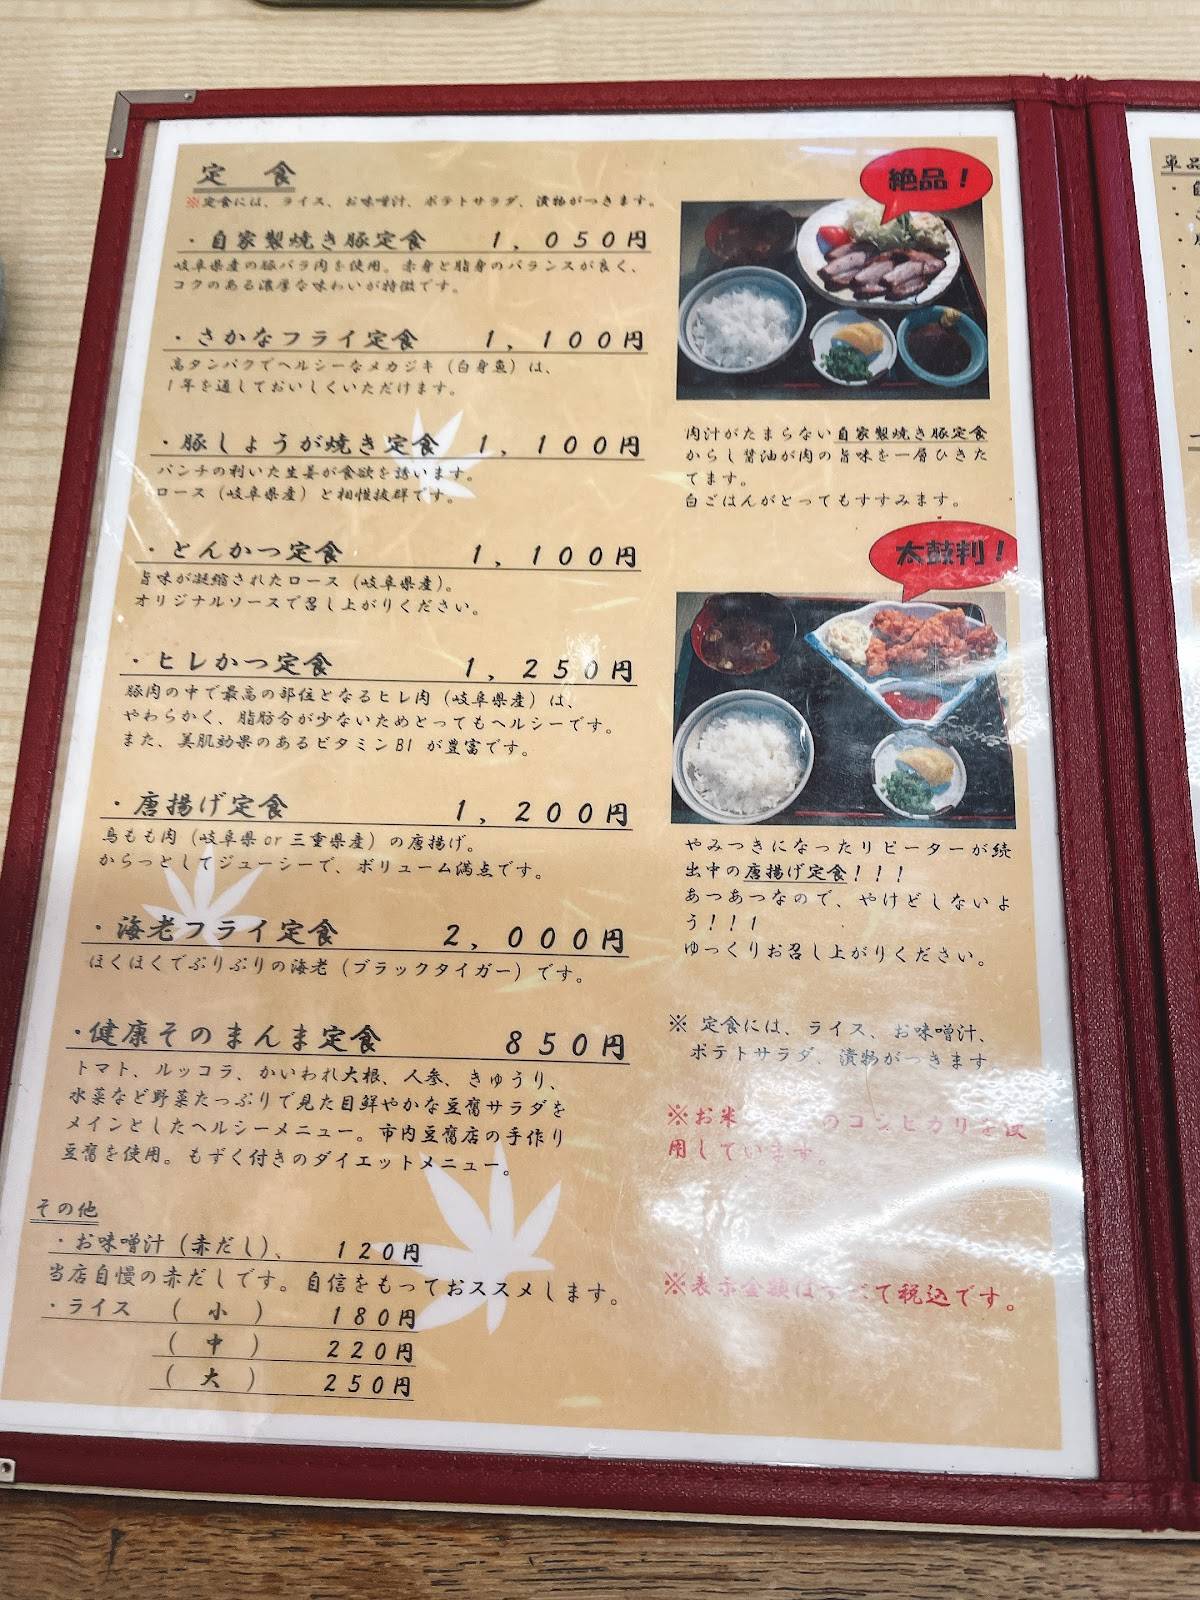 定　食
※定食には、ライス、お味噌汁、ポテトサラダ、漬物がつきます。
・自家製焼き豚定食　1,050円
岐阜県産の豚バラ肉を使用。赤身と脂身のバランスが良く、
コクのある濃厚な味わいが特徴です。
・さかなフライ定食　1,100円
高タンパクでヘルシーなメカジキ（白身魚）は、
1年を通しておいしくいただけます。
・豚しょうが焼き定食　1,100円
パンチの利いた生姜が食欲を誘います。
ロース（岐阜県産）と相性抜群です。
・とんかつ定食　1,100円
旨味が凝縮されたロース（岐阜県産）。
オリジナルソースで召し上がりください。
・ヒレかつ定食　1,250円
豚肉の中で最高の部位となるヒレ肉（岐阜県産）は、
やわらかく、脂肪分が少ないためとってもヘルシーです。
また、美肌効果のあるビタミンB1が豊富です。
・唐揚げ定食　1,200円
鳥もも肉（岐阜県or三重県産）の唐揚げ。
からっとしてジューシーで、ボリューム満点です。
・海老フライ定食　2,000円
ほくほくでぷりぷりの海老（ブラックタイガー）です。
・健康そのまんま定食　850円
トマト、ルッコラ、かいわれ大根、人参、きゅうり、
水菜など野菜たっぷりで見た目鮮やかな豆腐サラダを
メインとしたヘルシーメニュー。市内豆腐店の手作り
豆腐を使用。もずく付きのダイエットメニュー。
その他
・お味噌汁（赤だし）、　120円
当店自慢の赤だしです。自信をもっておススメします。
・ライス　（　小　）　180円
（　中　）　220円
（　大　）　250円
絶品！
肉汁がたまらない自家製焼き豚定食
からし醤油が肉の旨味を一層ひきた
てます。
白ごはんがとってもすすみます。
太鼓判！
やみつきになったリピーターが続
出中の唐揚げ定食！！！
あつあつなので、やけどしないよ
う！！！
ゆっくりお召し上がりください。
※ 定食には、ライス、お味噌汁、
ポテトサラダ、漬物がつきます
※お米 のコシヒカリを使
用しています。
※表示金額はすべて税込です。
単品